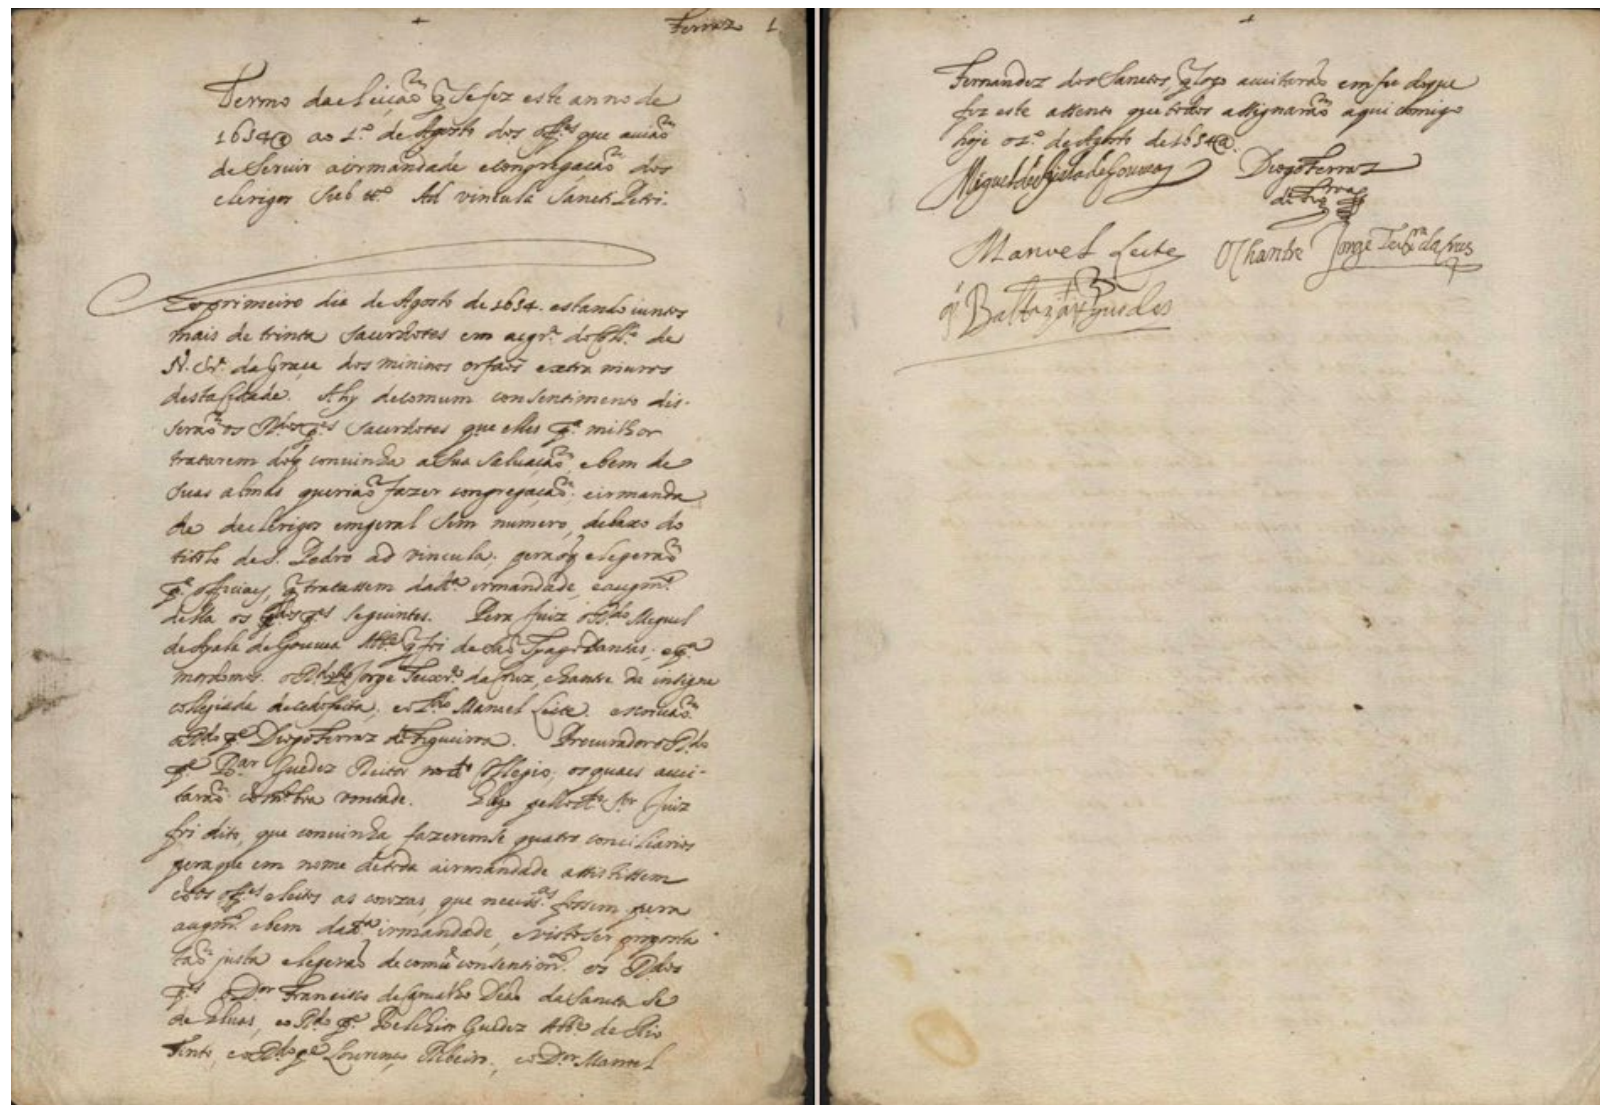 Ferraz 1
Termo da eleição q̃ se fez este anno de
1654@ ao 1.º de Agosto dos off.es que auião
de Seruir a irmandade e congregação dos
clerigos Sub tt.º Ad vincula Sancti Petri.
Ao primeiro dia de Agosto de 1654. estando iuntos
mais de trinta Sacerdotes em a igr.ª do Coll.º de
N. Sr.ª da Graça dos mininos orfaõs extra muros
desta Cidade. Ahy de comum consentimento dis-
seraõ os R.dos P.es Sacerdotes que elles p.ª milhor
tratarem do q̃ conuinha a Sua Saluação, e bem de
Suas almas queriaõ fazer congregação, e irmanda
de de clerigos em geral Sem numero, debaxo do
titolo de S. Pedro ad vincula. pera o q̃ elegeraõ
p.ª officiaes, q̃ tratassem da d.ª irmandade, e augm.to
della os R.dos P.es seguintes. Pera Juiz o R.do Miguel
de Ayala de Gouuea Abb.e q̃ foi de Saõ Tyago Dantas, e p.ª
mordomos. o R.do Jorge Teixr.ª da Cruz, chantre da insigne
collegiada de cedofeita, e o L.do Manuel Leite. escriuaõ
o R.do P.e Diogo Ferraz de Figueiroa. Procurador o R.do
P.e B.ar Guedez Reitor no d.º Collegio, os quaes acei-
taraõ de m.to boa vontade. E logo pello d.º Sr. Juiz
foi dito, que conuinha fazeremse quatro conciliarios
pera que em nome de toda a irmandade assistissem
cõ os off.es eleitos as couzas, que necess.as fossem pera
augm.to e bem da d.ª irmandade, e visto ser proposta
taõ justa elegeraõ de comũ consentim.to os R.dos
P.es o D.or Francisco de Carualho Deaõ da Sancta Se
de Eluas, e o R.do P.e Belchior Guedez Abb.e de Rio
Tinto, e o R.do P.e Lourenço Ribeiro, e o D.or Manuel
Fernandez dos Sanctos, q̃ logo aceitaraõ em fee do que
fiz este assento que todos assignaraõ aqui comigo
hoje o 1.º de Agosto de 1654@.
Miguel de Ayala de Gouuea Diogo Ferraz
de Fig.ra
Manuel Leite O Chantre Jorge Teix.ra da Crus
Baltazar Guedes